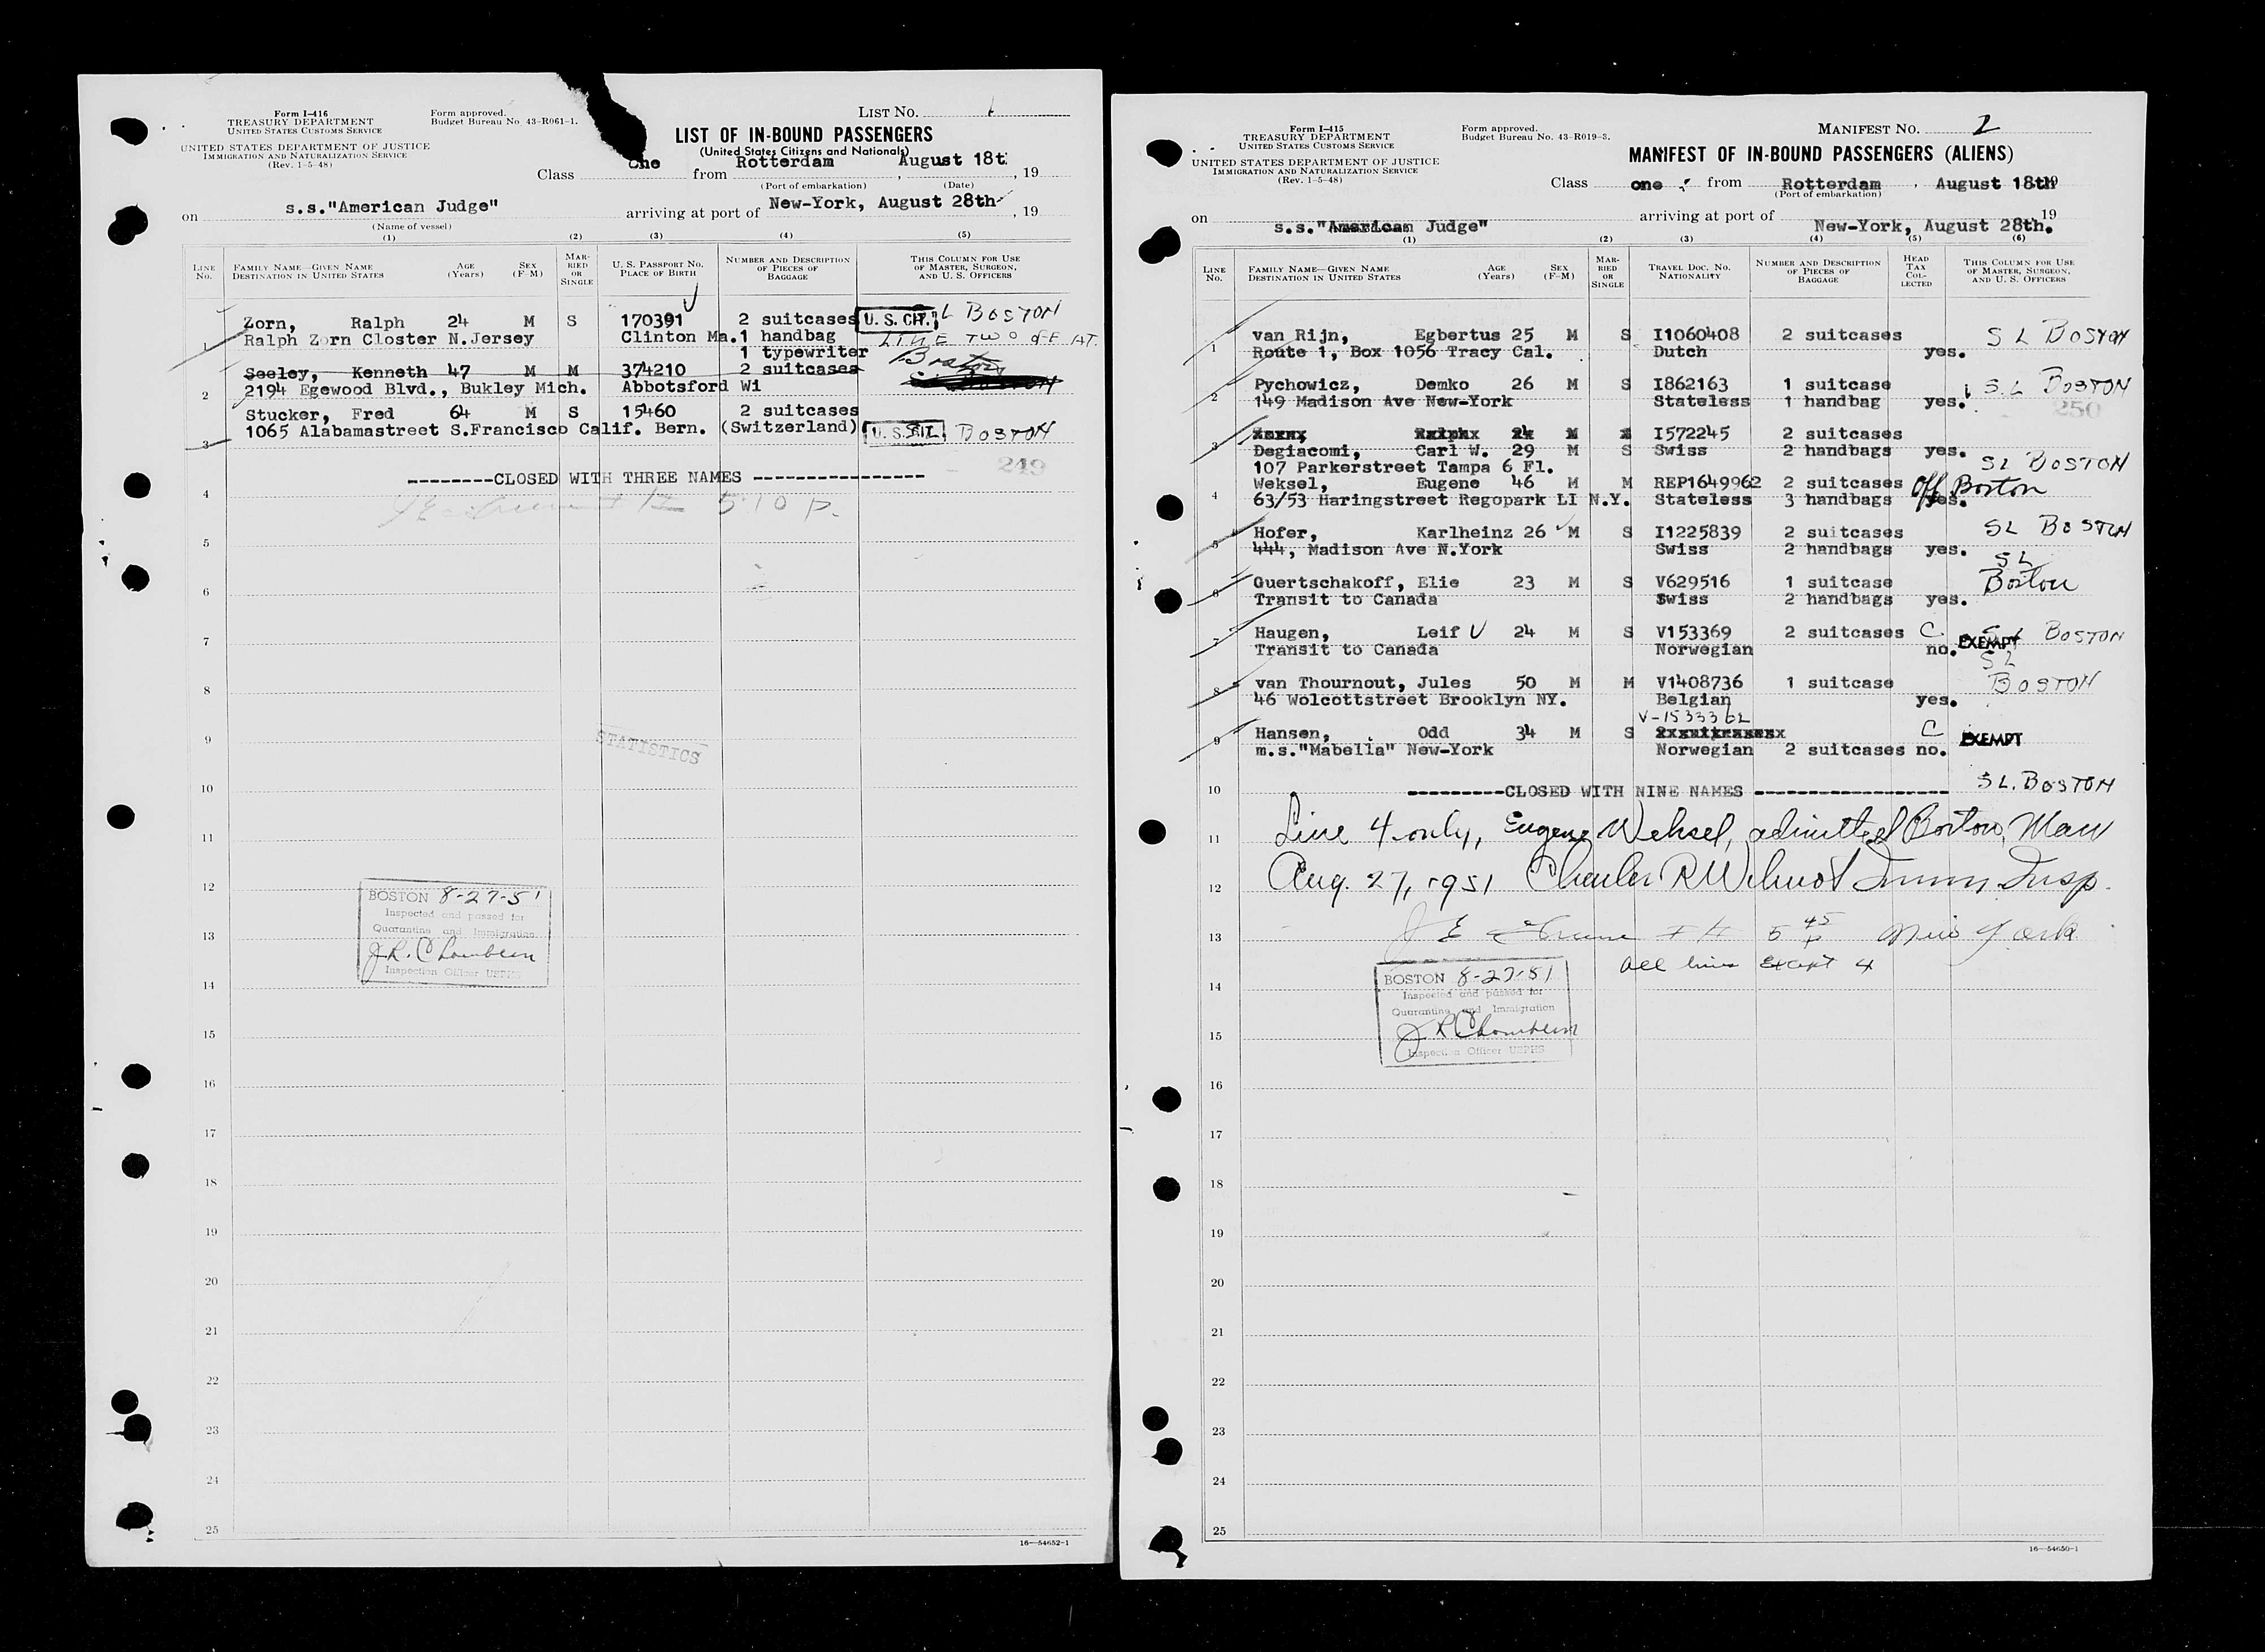 Form I-416
TREASURY DEPARTMENT
UNITED STATES CUSTOMS SERVICE
UNITED STATES DEPARTMENT OF JUSTICE
IMMIGRATION AND NATURALIZATION SERVICE
(Rev. 1-5-48)
Form approved.
Budget Bureau No. 43-R061-1.
LIST NO. 1
LIST OF IN-BOUND PASSENGERS
(United States Citizens and Nationals)
Class one from Rotterdam, August 18t, 19
(Port of embarkation) (Date)
on s.s."American Judge" arriving at port of New-York, August 28th, 19
(Name of vessel)
(1) (2) (3) (4) (5)
LINE No. FAMILY NAME—GIVEN NAME DESTINATION IN UNITED STATES AGE (Years) SEX (F-M) MARRIED OR SINGLE U. S. PASSPORT NO. PLACE OF BIRTH NUMBER AND DESCRIPTION OF PIECES OF BAGGAGE THIS COLUMN FOR USE OF MASTER, SURGEON, AND U. S. OFFICERS
Zorn, Ralph 24 M S 170391 2 suitcases U. S. CIT. SL BOSTON
1 Ralph Zorn Closter N.Jersey Clinton Ma. 1 handbag LINE TWO OFF AT
1 typewriter Boston
Seeley, Kenneth 47 M M 374210 2 suitcases
2 2194 Egewood Blvd., Bukley Mich. Abbotsford Wi
Stucker, Fred 64 M S 15460 2 suitcases
3 1065 Alabamastreet S.Francisco Calif. Bern. (Switzerland) U. S. CIT. BOSTON
249
--------CLOSED WITH THREE NAMES ----------------
4
5 10 P.
5
6
7
8
9
STATISTICS
10
11
12
BOSTON 8-27-51
Inspected and passed for
Quarantine and Immigration
13
J.R. Chamblin
Inspection Officer USPHS
14
15
16
17
18
19
20
21
22
23
24
25
16—54652-1
Form I-415
TREASURY DEPARTMENT
UNITED STATES CUSTOMS SERVICE
UNITED STATES DEPARTMENT OF JUSTICE
IMMIGRATION AND NATURALIZATION SERVICE
(Rev. 1-5-48)
Form approved.
Budget Bureau No. 43-R019-3.
MANIFEST NO. 2
MANIFEST OF IN-BOUND PASSENGERS (ALIENS)
Class one from Rotterdam, August 18th 19
(Port of embarkation)
on s.s."American Judge" arriving at port of New-York, August 28th. 19
(1) (2) (3) (4) (5) (6)
LINE No. FAMILY NAME—GIVEN NAME DESTINATION IN UNITED STATES AGE (Years) SEX (F-M) MARRIED OR SINGLE TRAVEL DOC. NO. NATIONALITY NUMBER AND DESCRIPTION OF PIECES OF BAGGAGE HEAD TAX COLLECTED THIS COLUMN FOR USE OF MASTER, SURGEON, AND U. S. OFFICERS
van Rijn, Egbertus 25 M S I1060408 2 suitcases S L BOSTON
1 Route 1, Box 1056 Tracy Cal. Dutch yes.
Pychowicz, Demko 26 M S I862163 1 suitcase S.L BOSTON
2 149 Madison Ave New-York Stateless 1 handbag yes.
250
Ralph 24 M I572245 2 suitcases
3 Degiacomi, Carl W. 29 M S Swiss 2 handbags yes.
107 Parkerstreet Tampa 6 Fl. SL BOSTON
Weksel, Eugene 46 M M REP1649962 2 suitcases Off Boston
4 63/53 Haringstreet Regopark LI N.Y. Stateless 3 handbags yes.
Hofer, Karlheinz 26 M S I1225839 2 suitcases SL BOSTON
5 444, Madison Ave N.York Swiss 2 handbags yes.
SL
Guertschakoff, Elie 23 M S V629516 1 suitcase Boston
6 Transit to Canada Swiss 2 handbags yes.
Haugen, Leif 24 M S V153369 2 suitcases C. SL BOSTON
7 Transit to Canada Norwegian no. EXEMPT
SL
van Thournout, Jules 50 M M V1408736 1 suitcase BOSTON
8 46 Wolcottstreet Brooklyn NY. Belgian yes.
V-1533362
Hansen, Odd 34 M S C EXEMPT
9 m.s."Mabella" New-York Norwegian 2 suitcases no.
10 ---------CLOSED WITH NINE NAMES ------------------ SL. BOSTON
11 Line 4 only, Eugene Weksel, admitted Boston, Mass
12 Aug. 27, 1951 Charles R Wilmot Immn. Insp.
13 5 45 P New York
All lines except 4
BOSTON 8-27-51
14
Inspected and passed for
Quarantine and Immigration
15
J R Chamblin
Inspection Officer USPHS
16
17
18
19
20
21
22
23
24
25
16—54650-1